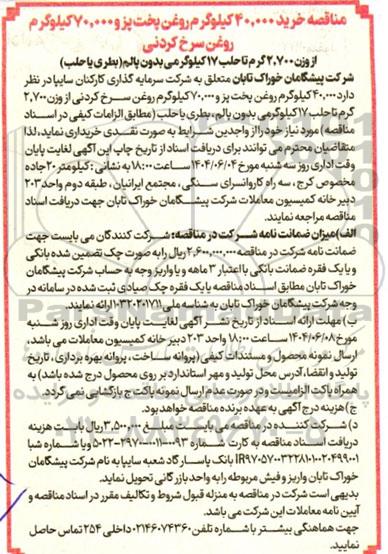 مناقصه خرید ۴۰,۰۰۰ کیلوگرم روغن پخت پز و ۷۰,۰۰۰ کیلوگرم
روغن سرخ کردنی
از وزن ۲,۷۰۰ گرم تا حلب ۱۷ کیلوگرمی بدون پالم (بطری یا حلب)
شرکت پیشگامان خوراک تابان متعلق به شرکت سرمایه گذاری کارکنان سایپا در نظر
دارد ۴۰,۰۰۰ کیلوگرم روغن پخت پز و ۷۰,۰۰۰ کیلوگرم روغن سرخ کردنی از وزن ۲,۷۰۰
گرم تا حلب ۱۷ کیلوگرمی بدون پالم، بطری یا حلب (مطابق الزامات کیفی در اسناد
مناقصه) مورد نیاز خود را از واجدین شرایط به صورت نقدی خریداری نماید، لذا
متقاضیان محترم می توانند برای دریافت اسناد از تاریخ چاپ این آگهی لغایت پایان
وقت اداری روز سه شنبه مورخ ۱۴۰۴/۰۶/۰۴ ساعت ۱۸:۰۰ به نشانی: کیلومتر ۲۰ جاده
مخصوص کرج، سه راه کاروانسرای سنگی، مجتمع ایرانیان، طبقه دوم واحد ۲۰۳
دبیرخانه کمیسیون معاملات شرکت پیشگامان خوراک تابان جهت دریافت اسناد
مناقصه مراجعه نمایند.
الف) میزان ضمانت نامه شرکت در مناقصه: شرکت کنندگان می بایست جهت
ضمانت نامه شرکت در مناقصه ۲,۶۰۰,۰۰۰,۰۰۰ ریال را به صورت چک تضمین شده بانکی
و یا یک فقره ضمانت بانکی با اعتبار ۳ ماهه و یا واریز وجه به حساب شرکت پیشگامان
خوراک تابان مطابق اسناد مناقصه یا یک فقره چک صیادی ثبت شده در سامانه در
وجه شرکت پیشگامان خوراک تابان به شناسه ملی ۱۰۳۲۰۲۰۱۷۱۱ ارائه نمایند.
ب) مهلت ارائه اسناد از تاریخ نشر آگهی لغایت پایان وقت اداری روز شنبه
مورخ ۱۴۰۴/۰۶/۰۸ ساعت ۱۸:۰۰ واحد ۲۰۳ دبیرخانه کمیسیون معاملات می باشد،
ارسال نمونه محصول و مستندات کیفی (پروانه ساخت، پروانه بهره برداری، تاریخ
تولید و انقضا، آدرس محل تولید و مهر استاندارد بر روی محصول درج شده باشد) به
همراه پاکت الزامیست و در صورت عدم ارسال نمونه پاکت ج بازگشایی نمی گردد.
ج) هزینه درج آگهی به عهده برنده مناقصه خواهد بود.
د) شرکت کننده در مناقصه می بایست مبلغ ۳,۵۰۰,۰۰۰ ریال بابت هزینه
دریافت اسناد مناقصه به کارت شماره
بانک پاسارگاد شعبه سایپا به نام شرکت پیشگامان
خوراک تابان واریز و فیش مربوطه را به واحد بازرگانی تحویل نماید.
بدیهی است شرکت در مناقصه به منزله قبول شروط و تکالیف مقرر در اسناد مناقصه و
آیین نامه معاملات این شرکت می باشد.
جهت هماهنگی بیشتر با شماره تلفن ۰۲۱۴۶۰۷۴۳۶۰ داخلی ۲۵۴ تماس حاصل
نمایید.